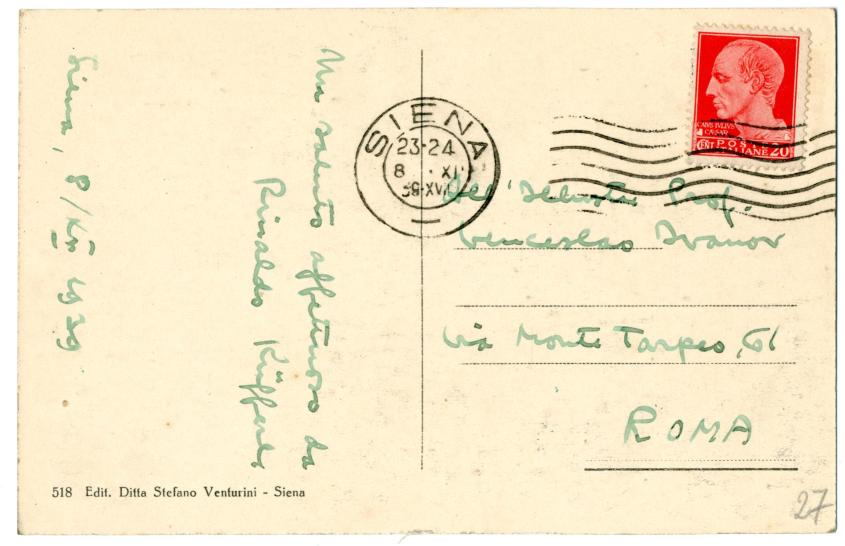 Siena, 8/XII 1939
Un saluto affettuoso da
Rinaldo Küfferle
518 Edit. Ditta Stefano Venturini - Siena
SIENA
23-24
8 · XI
39-XVI
CAIVS IVLIVS
CAESAR
POSTE
CENT ITALIANE 20
All'Illustre Prof.
Venceslao Ivanov
via Monte Tarpeo, 61
ROMA
27